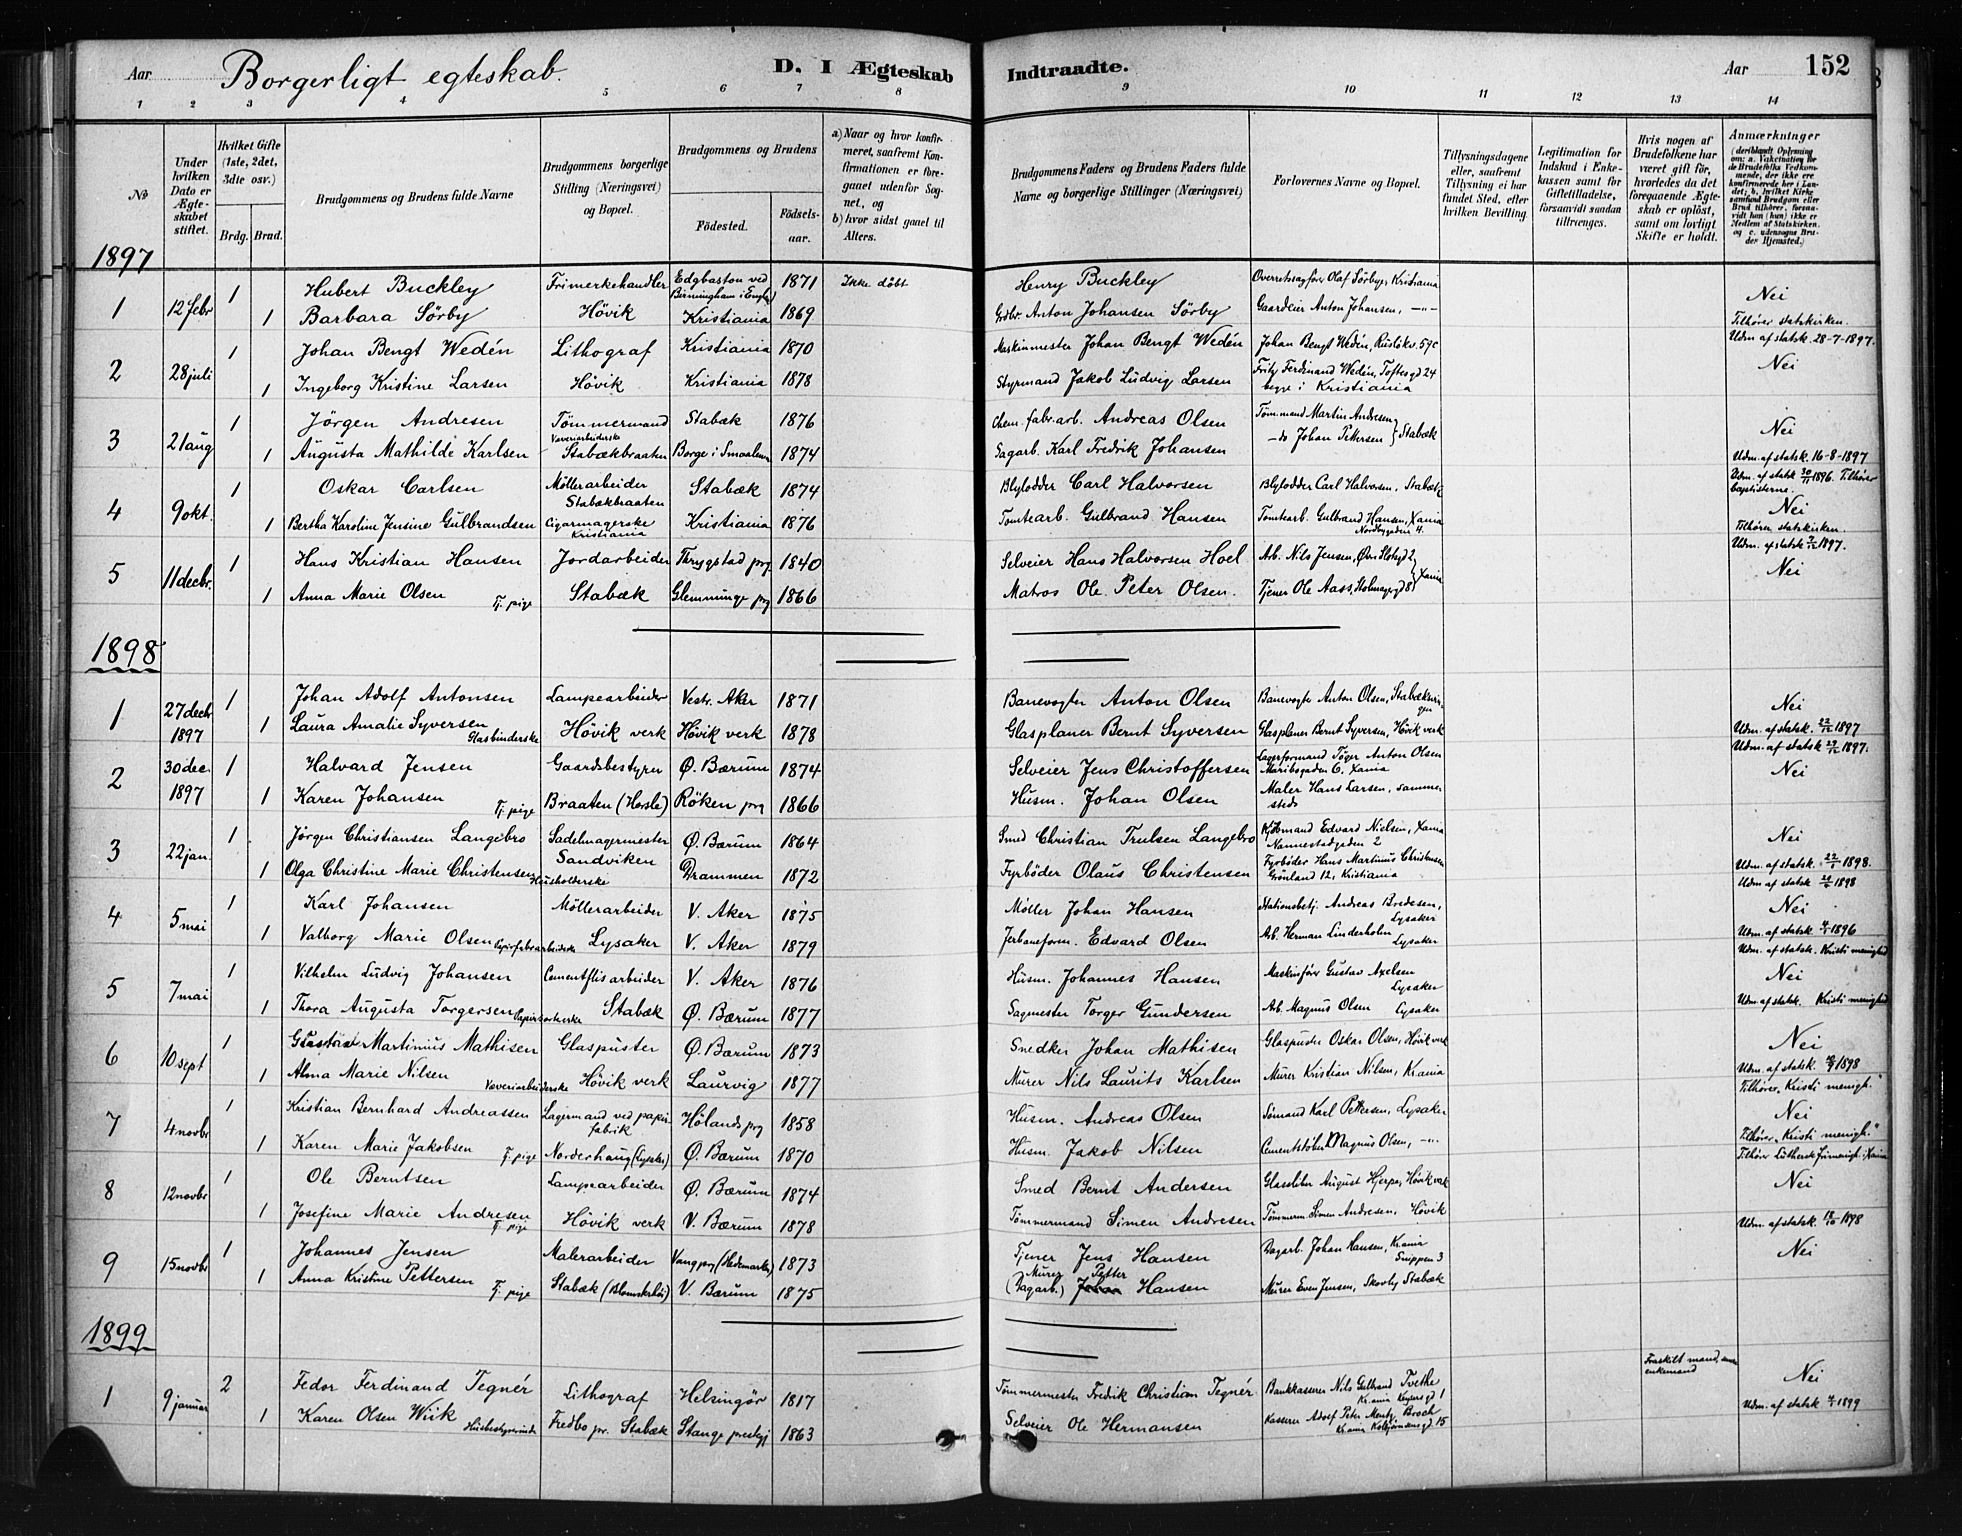 Aar
Borgerligt egteskab.
D. I Ægteskab Indtraadte.
Aar 152
1 2 3 4 5 6 7 8 9 10 11 12 13 14
№
Under hvilken Dato er Ægteskabet stiftet.
Hvilket Gifte (1ste, 2det, 3die osv.)
Brdg. Brud.
Brudgommens og Brudens fulde Navne
Brudgommens borgerlige Stilling (Næringsvei) og Bopæl.
Brudgommens og Brudens
Fødested.
Fødsels-aar.
a) Naar og hvor konfirmeret, saafremt Konfirmationen er foregaaet udenfor Sognet, og
b) hvor sidst gaaet til Alters.
Brudgommens Faders og Brudens Faders fulde Navne og borgerlige Stillinger (Næringsvei)
Forlovernes Navne og Bopæl.
Tillysningsdagene eller, saafremt Tillysning ei har fundet Sted, efter hvilken Bevilling.
Legitimation for Indskud i Enkekassen samt for Giftetilladelse, forsaavidt saadan tiltrænges.
Hvis nogen af Brudefolkene har været gift før, hvorledes da det foregaaende Ægteskab er opløst, samt om lovligt Skifte er holdt.
Anmærkninger
1897
1 12 febr 1 Hubert Buckley Frimerkehandler Edgbaston ved Birmingham i Engl. 1871 Ikke döbt Henry Buckley Overretssagfører Olaf Sörbye, Kristiania Nei
1 Barbara Sörby Hövik Kristiania 1869 Grdbr. Anton Johansen Sörby Gaardeier Anton Johansen, —"— Tilhører statskirken.
2 28 juli 1 Johan Bengt Wedén Lithograf Kristiania 1870 Maskinmester Johan Bengt Wedén Johan Bengt Wedén, 59c Udm. af statsk. 28-7-1897. Nei
1 Ingeborg Kristine Larsen Hövik Kristiania 1878 Styrmand Jakob Ludvig Larsen Fritz Ferdinand Wedén, Toftesgd 24 begge i Kristiania
3 21 aug 1 Jörgen Andresen Tömmermand Stabæk 1876 Chem. fabr. arb. Andreas Olsen Tømmand Martin Andresen Nei
1 Augusta Mathilde Karlsen Væveriarbeiderske Stabækbraaten Borge i Smaalenene 1874 Sagarb. Karl Fredrik Johansen —do Johan Pettersen } Stabæk Udm. af statsk. 16-8-1897
4 9 okt. 1 Oskar Carlsen Möllerarbeider Stabækbraaten Stabæk 1874 Blylodder Carl Halvorsen Blylodder Carl Halvorsen, Stabæk Udm. af statsk 1896. Tilhører baptisterne. Nei
1 Bertha Karoline Jensine Gulbrandsen Cigarmagerske Kristiania Kristiania 1876 Tomtearb. Gulbrand Hansen Tomtearb. Gulbrand Hansen, Xania Nordbygaden 4. Tilhører statskirken.
5 11 decbr. 1 Hans Kristian Hansen Jordarbeider Thrygstad prg 1840 Selveier Hans Halvorsen Hoel Arb. Nils Jensen, Øvre Slotsgd 2 Udm. af statsk 1897. Nei
1 Anna Marie Olsen Tj. pige Stabæk Glemminge prg 1866 Matros Ole Peter Olsen. Tjener Ole Aass, Holmsgd 8 } Xania
1898
1 27 decbr 1897 1 Johan Adolf Antonsen Lampearbeider Vestr. Aker 1871 Banevogter Anton Olsen Banevogte Anton Olsen, Nei
1 Laura Amalie Syversen Glasbinderske Hövik verk Hövik verk 1878 Glasplaner Bernt Syversen Glasplaner Bernt Syversen, Hövik verk Udm. af statsk. 22/12 1897
2 30 dec. 1897 1 Halvard Jensen Gaardsbestyrer Ø. Bærum 1874 Selveier Jens Christoffersen Lagerformand Töger Anton Olsen Maribogaden 6, Xania Udm. af statsk 1897. Nei
1 Karen Johansen Tj. pige Braaten (Horsle) Röken prg 1866 Husm. Johan Olsen Maler Hans Larsen, sammesteds
3 22 jan. 1 Jörgen Christiansen Langebro Sadelmagermester Ø. Bærum 1864 Smed Christian Trulsen Langebro Edvard Nielsen, Xania Nannestadgaden 2 Nei
1 Olga Christine Marie Christensen Husholderske Sandviken Drammen 1872 Fyrbøder Olaus Christensen Fyrbøder Hans Martinus Christensen Grønland 12, Kristiania Udm. af statsk. 22/1 1898.
4 5 mai 1 Karl Johansen Möllerarbeider V. Aker 1875 Møller Johan Hansen Stationsbetj. Andreas Bredesen, Lysaker Udm af statsk 1898 Nei
1 Valborg Marie Olsen Papirfabrarbeiderske Lysaker V. Aker 1879 Jerbaneform. Edvard Olsen Arb. Herman Linderholm Lysaker Udm. af statsk. 1896
5 7 mai 1 Vilhelm Ludvig Johansen Cementflisarbeider V. Aker 1876 Husm. Johannes Hansen Maskinfører Gustav Axelsen Lysaker Udm. af statsk. Kristi menighed Nei
1 Thora Augusta Torgersen Papirsorterske Stabæk Ø. Bærum 1877 Sagmester Torger Gundersen Arb. Magnus Olsen Lysaker Udm. af statsk. Kristi menighed
6 10 sept 1 Gustav Martinius Mathisen Glaspuster Ø. Bærum 1873 Snedker Johan Mathisen Glaspuster Oskar Olsen, Hövik verk Nei
1 Alma Marie Nilsen Væveriarbeiderske Hövik verk Laurvig 1877 Murer Nils Laurits Karlsen Murer Kristian Nilsen, Kr.ania Udm. af statsk. 1898
7 4 novbr 1 Kristian Bernhard Andreassen Lagermand ved papirfabrik Hölands prg 1858 Husm. Andreas Olsen Sömand Karl Pettersen, Lysaker Tilhører "Kristi menigh." Nei
1 Karen Marie Jakobsen Tj. pige Norderhaug (Lysaker) Ø. Bærum 1870 Husm. Jakob Nilsen Cementstøber Magnus Olsen, —"— Tilhører "Kristi menigh."
8 12 novbr 1 Ole Berntsen Lampearbeider Ø. Bærum 1874 Smed Bernt Andersen Glassliber August Hjerpe, Hövik verk Tilhører Luthersk frimenigh. i Xania Nei
1 Josefine Marie Andresen Tj. pige Hövik verk V. Bærum 1878 Tömmermand Simen Andresen Tömmerm. Simen Andresen, Hövik Udm. af statsk. 1898
9 15 novbr 1 Johannes Jensen Malerarbeider Vang prg (Hedemarken) 1873 Tjener Jens Hansen Dagarb. Johan Hansen, Kr.ania Snippen 3 Nei
1 Anna Kristine Pettersen Tj. pige Stabæk V. Bærum 1875 Murer (Dagarb.) Petter Johan Hansen Murer Even Jensen, Skovly Stabæk
1899
1 9 januar 2 Fedor Ferdinand Tegnér Lithograf Helsingör 1817 Tömmermester Fredrik Christian Tegnér Bankkasserer Nils Gulbrand Tvethe Kr.ania 1 Fraskilt mand, enkemand Nei
1 Karen Olsen Wiik Husbestyrerinde Fredbo pr. Stabæk Stange prestgj 1863 Selveier Ole Hermansen Kasserer Adolf Peter Mentz Broch Kr.ania 15 Udm. af statsk 1899